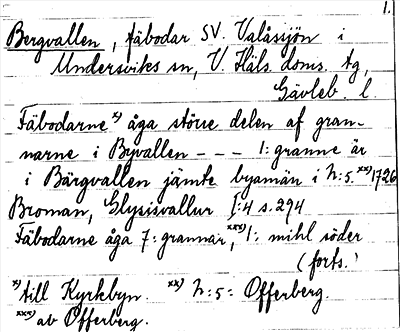 1.
Bergvallen, fäbodar SV. Valåssjön i
Undersviks sn, V. Häls. doms. tg,
Gävleb. l.
Fäbodarne x) åga större delen af gran-
narne i Byvallen - - - 1: granne är
i Bärgvallen jämte byamän i N:5. xx) 1726
Broman, Glysisvallur I:4 s. 294
Fäbodarne åga 7: grannar, xxx) 1: mihl söder
(forts.)
x) till Kyrkbyn xx) N:5= Offerberg.
xxx) av Offerberg.